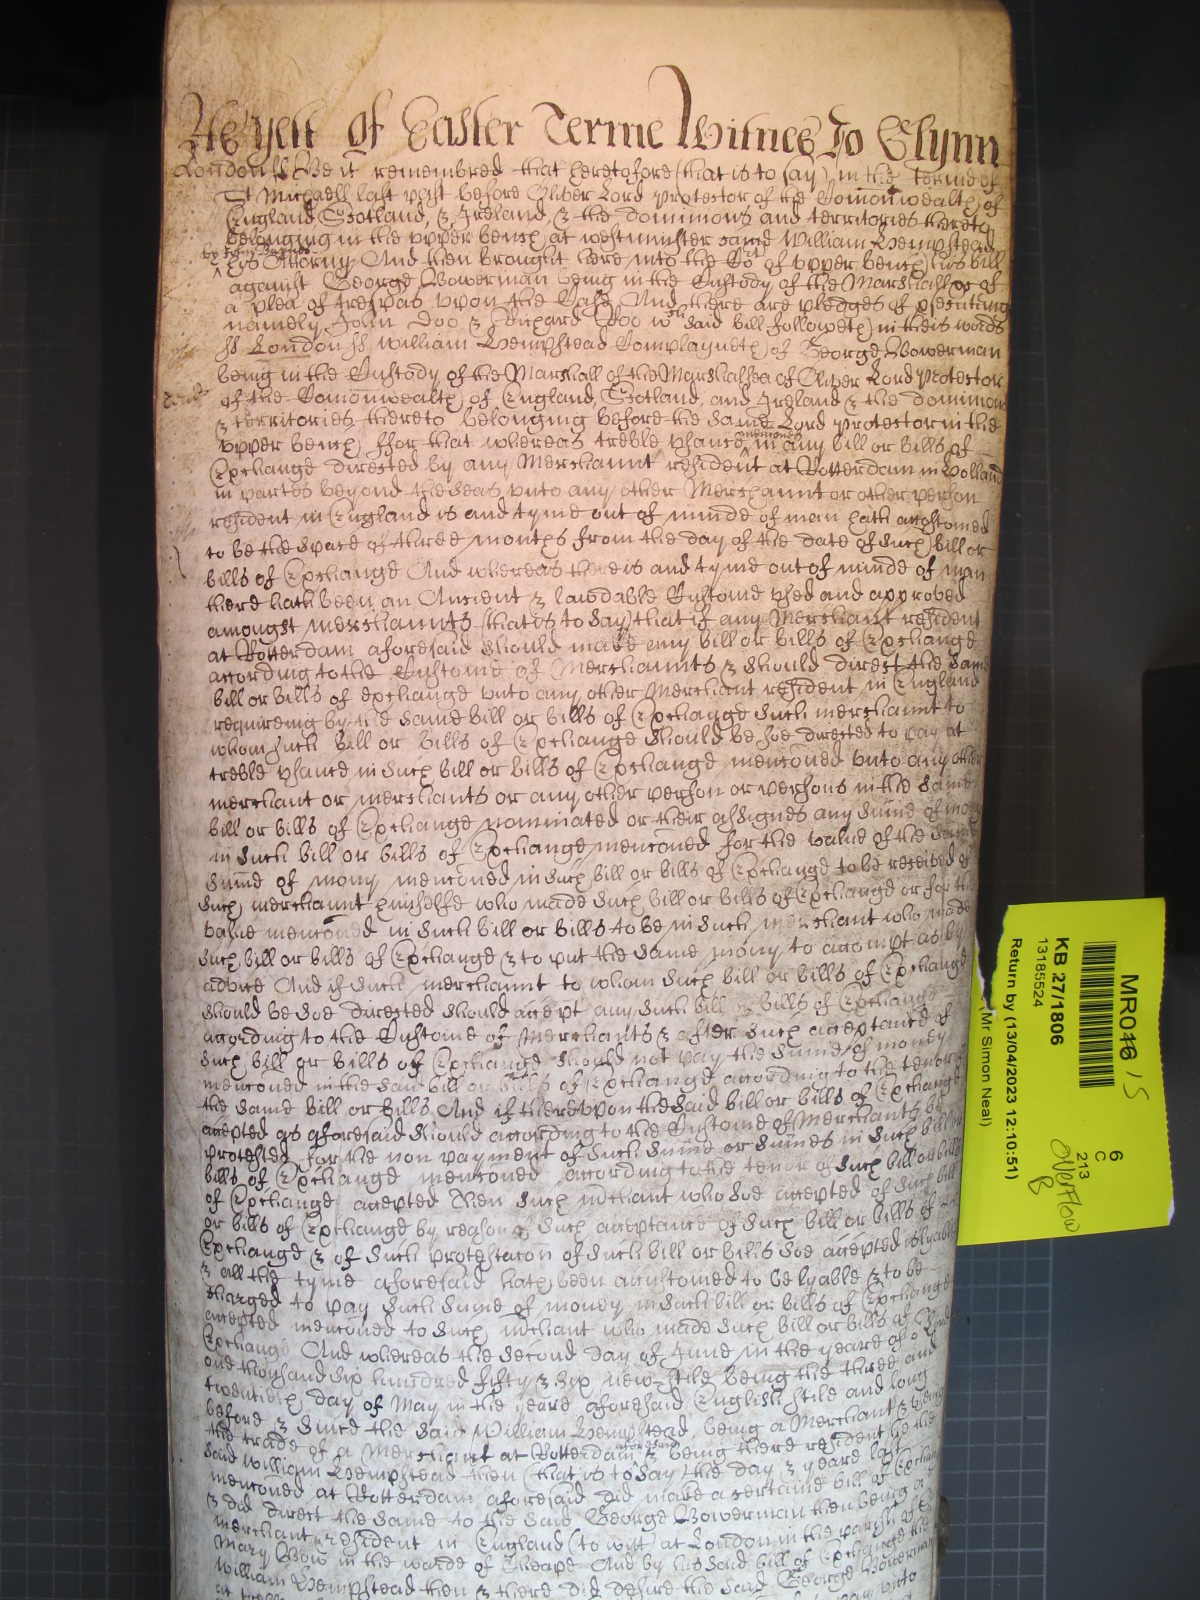 As yett of Easter Terme Witnes Jo Glynn
London ss Be it remembred that heretofore (that is to say) in the terme of
St Michaell last past before Oliver Lord Protector of the Comonwealth of
England Scotland, & Ireland, & the dominions and territories thereto
belonging in the upper bench at westminster came William Hempstead
by John
his Attorny And then brought here into the Cort of upper bench his bill
against George Bowerman being in the Custody of the Marshall &c of
a plea of trespas upon the Case And there are pledges of prosecuting
namely John Doo & Richard Roo wch said bill followeth in theis words
ss London ss William Hempstead Complayneth of George Bowerman
being in the Custody of the Marshall of the Marshalsea of Oliver Lord Protector
of the Comonwealth of England, Scotland, and Ireland & the dominions
& territories thereto belonging before the same Lord Protector in the
upper bench ffor that whereas treble usance menconed in any bill or bills of
Exchange directed by any Merchannt resident at Rotterdam in Holland
in partes beyond the seas unto any other Merchannt or other person
resident in England is and tyme out of minde of man hath accustomed
to be the space of three months from the day of the date of such bill or
bills of Exchange And whereas there is and tyme out of minde of man
there hath been an Ancient & lawdable Custome used and approved
amongst merchannts (that is to say) that if any Merchant resident
at Rotterdam aforesaid should make any bill or bills of Exchange
according to the Custome of Merchannts & should direct the same
bill or bills of exchange unto any other Merchant resident in England
requireing by the same bill or bills of Exchange such merchannt to
whom such bill or bills of Exchange should be soe directed to pay at
treble usance in such bill or bills of Exchange menconed unto any other
merchant or merchants or any other person or persons in the same
bill or bills of Exchange nominated or their assignes any sume of mony
in such bill or bills of Exchange menconed for the value of the same
sume of mony menconed in such bill or bills of Exchange to be received of
such merchannt himselfe who made such bill or bills of Exchange or for the
value menconed in such bill or bills to be in such merchant who made
such bill or bills of Exchange & to put the same mony to accompt as by
advice And if such merchannt to whom such bill or bills of Exchange
should be soe directed should accept any such bill or bills of Exchange
according to the Custome of Merchants & after such acceptance of
such bill or bills of Exchange should not pay the sume of money
menconed in the said bill or bills of Exchange according to the tenor of
the same bill or bills And if thereupon the said bill or bills of Exchange
accepted as aforesaid should according to the Custome of Merchants be
protested for the non payment of such sume or sumes in such bill or
bills of Exchange menconed according to the tenor of such bill or bills
of Exchange accepted Then such mchant who soe accepted of such bill
or bills of Exchange by reason of such acceptance of such bill or bills of
Exchange & of such protestacon of such bill or bills soe accepted is lyable
& all the tyme aforesaid hath been accustomed to be lyable & to be
charged to pay such sume of money in such bill or bills of Exchange
accepted menconed to such mchant who made such bill or bills of
Exchange And whereas the second day of June in the yeare of or Lord
one thousand six hundred fifty & six new stile being the three and
twentieth day of May in the yeare aforesaid English stile and long
before & since the said William Hempstead being a Merchant & useing
the trade of a Merchant at Rotterdam aforesaid & being there resident he the
said William Hempstead then (that is to say) the day & yeare last
menconed at Rotterdam aforesaid did make a certaine bill of Exchange
& did direct the same to the said George Bowerman then being a
merchant & resident in England (to wit) at London in the parish of St
Mary Bow in the warde of Cheape And by his said bill of Exchange the
William Hempstead then & there did desire the said George Bowerman
MR046 / 5
KB 27/1806
13185524
Return by (13/04/2023 12:10:51)
(Mr Simon Neal)
6
C
213
overflow
B